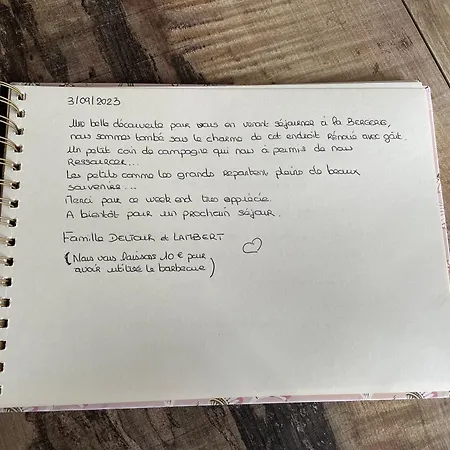 3/09/2023
Une belle découverte pour nous en venant séjourner à la BERGERIE,
nous sommes tombé sous le charme de cet endroit rénové avec goût.
Un petit coin de campagne qui nous à permis de nous
RESSOURCER...
Les petits comme les grands repartent pleins de beaux
souvenirs...
Merci pour ce week end très appréciée.
A bientôt pour un prochain séjour.
Famille DELTOUR et LAMBERT
(Nous vous laissons 10 € pour
avoir utilisé le barbecue)